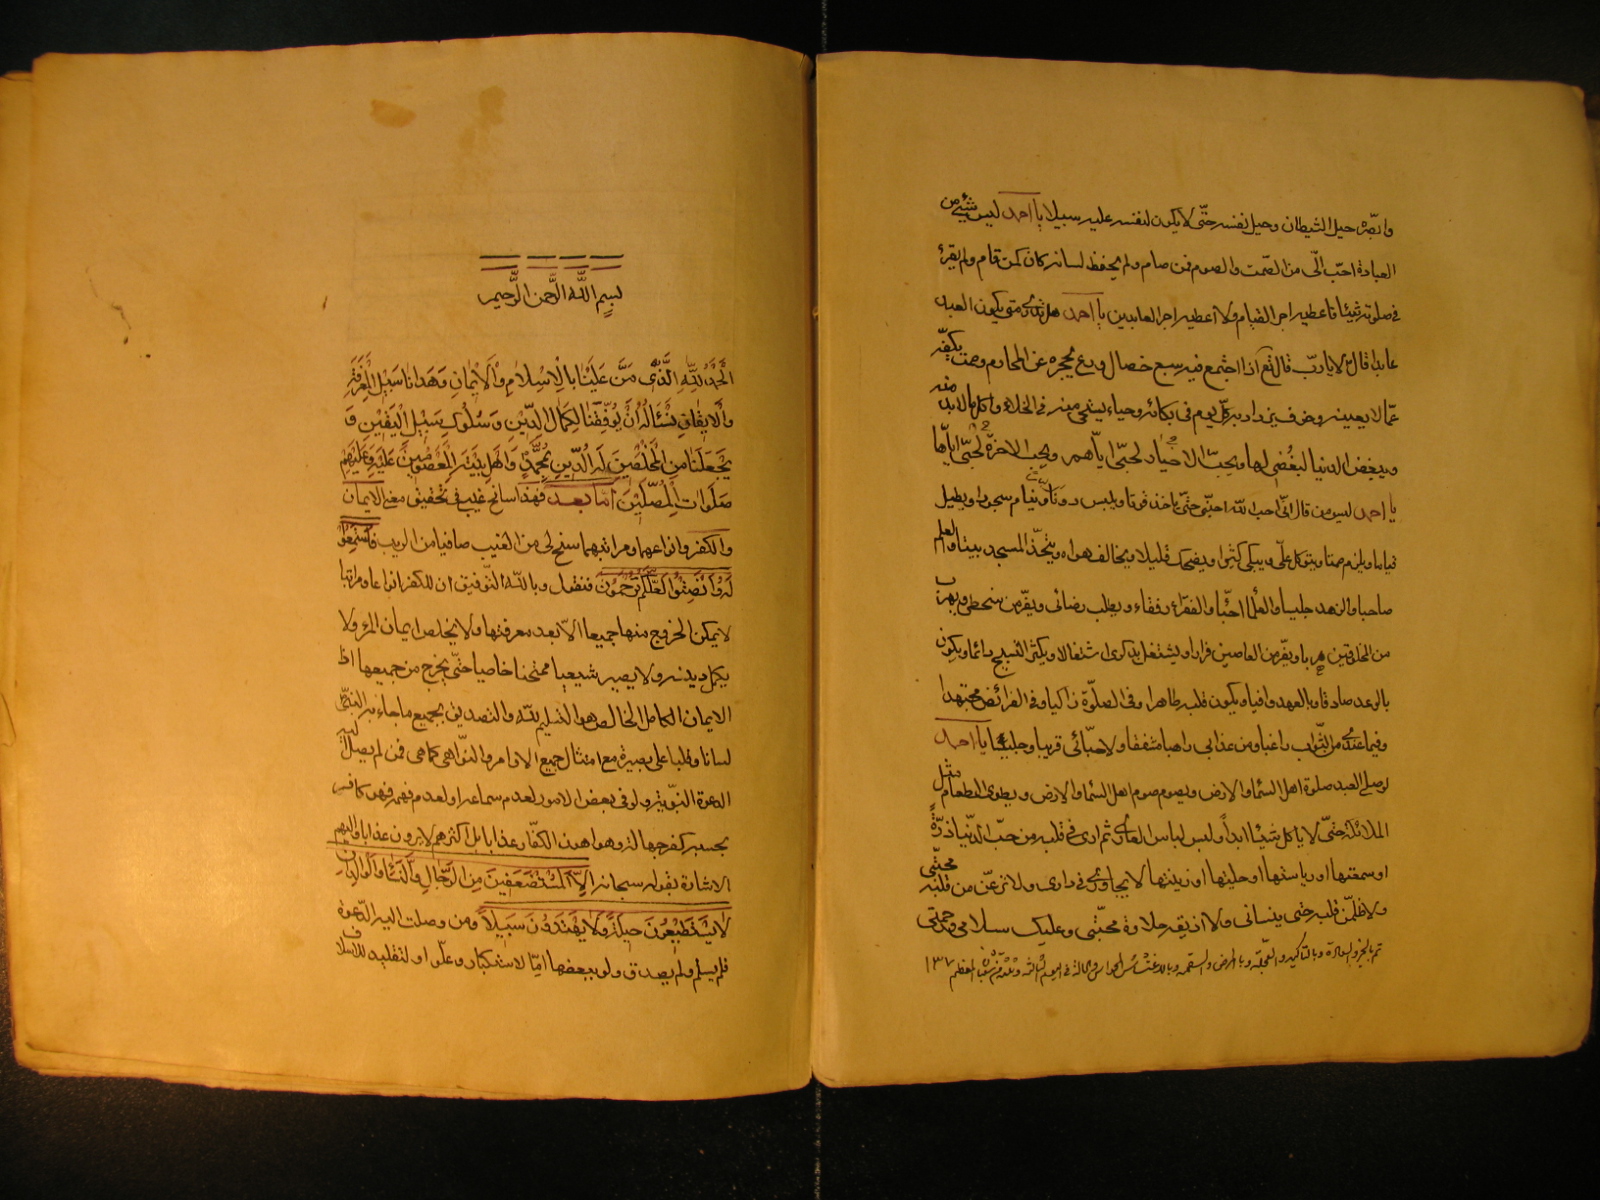 وابصّره حيل الشيطان وحيل نفسه حتّى لا يكون لنفسه عليه سبيلا يا احمد ليس شيئ من
العبادة احبّ الىّ من الصّمت والصوم فمن صام ولم يحفظ لسانه كان كمن قام ولم يقرء
فى صلوته شيئا فاعطيه اجر القيام ولا اعطيه اجر العابدين يا احمد هل تدرى متى يكون العبد
عابدا قال لا يا ربّ قال تع اذا اجتمع فيه سبع خصال ورع يحجزه عن المحارم وصمت يكفّه
عمّا لا يعينه وخوف يزداد به كل يوم فى بكائه وحياء يستحى منه فى الخلاء واكل ما لا بد منه
ويبغض الدنيا لبغضى لها ويحبّ الاخيار لحبّى ايّاهم ويحب الاخرة لحبّى ايّاها
يا احمد ليس من قال انّى احب اللّه احبّنى حتّى ياخذ قوتا ويلبس دونا وينام سجودا ويطيل
قياما ويلزم صمتا ويتوكل علىّ ويبكى كثيرا ويضحك قليلا ويخالف هواه ويتّخذ المسجد بيتا والعلم
صاحبا والزهد جليسا والعلما احبّا والفقراء رفقاء ويطلب رضائى ويفرّ من سخطى ويهرب
من المخلوقين هربا ويفرّ من العاصين فرارا ويشتغل بذكرى اشتغالا ويكثر التسبيح دائما ويكون
بالوعد صادقا وبالعهد وافيا ويكون قلبه طاهرا وفى الصلوة زاكيا وفى الفرائض مجتهدا
وفيما عندى من الثّواب راغبا ومن عذابى راهبا مشفقا ولاحبّائى قريبا وجليسا يا احمد
لو صلى العبد صلوة اهل السمٰا والارض ويصوم صوم اهل السمٰا والارض ويطوى الطعام مثل
الملائكة حتّى لا ياكل شيئا ابداً ولبس لباس العارى ثم ارى فى قلبه من حبّ الدّنيا ذرّةً
او سمعتها او رياستها او حليتها او زينتها لا يجاورنى فى دارى ولانزعنّ من قلبه محبّتى
ولاظلمّن قلبه حتى ينسانى ولا اذيقه حلاوة محبّتى وعليك سلامى ورحمتى
بسم اللّه الرّحمن الرّحيم
اَلْحَمْدُ لِلّٰهِ الَّذى مَنَّ عَلَيْنا بِالْاِسْلامِ وَالْايٖمانِ وَهَدانا سَبيٖلَ الْمَعْرِفَةِ
وَالْايقانِ نَسْئَلُهُ اَنْ يُوَفِّقَنا لِكمال الدّيٖنِ وَسُلُوكِ سَبيٖلِ الْيَقيٖنِ وَ
يَجْعَلَنا مِنَ الْمُخْلِصيٖنَ لَهُ الدّيٖنِ بِمُحَمَّدٍ وَاَهْلِ بَيْتِهِ الْمَعْصُوميٖنَ عَلَيْهِ وَعَلَيْهِمْ
صَلَواتُ الْمُصَلّيٖنَ امّا بعد فهذا سانح غيب فى تحقيق معنى الايمان
والكفر وانواعهما ومراتبهما سنح لى من الغيب صافيا من الريب فَاسْتَمِعُوا
لَهُ وَاَنْصِتُوا لَعَلَّكُمْ تُرْحَمُونَ فنقول وباللّه التّوفيق ان للكفر انواعا ومراتبا
لا يمكن الخروج منها جميعا الّا بعد معرفتها ولا يخلص ايمان المرء ولا
يكمل دينه ولا يصير شيعيا ممتحنا خاصيا حتّى يخرج من جميعها اذ
الايمان الكامل الخالص هو التسليم للّه والتصديق بجميع ما جاء به النّبىّ
لسانا وقلبا على بصيرة مع امتثال جميع الاوامر والنّواهى كما هى فمن لم يصل اليه
الدعوة النّبويّة ولو فى بعض الامور لعدم سماعه او لعدم فهمه فهو كافر
بحسبه كفر جهالة وهو اهون الكفّار عذابا بل اكثرهم لا يرون عذابا واليهم
الاشارة بقوله سبحانه اِلَّا الْمُسْتَضْعَفيٖنَ مِنَ الرِّجالِ وَالنِّسٰاءِ وَالْوِلْدانِ
لا يَسْتَطيٖعُونَ حيٖلَةً وَلا يَهْتَدُونَ سَبيٖلاً ومن وصلت اليه الدّعوة
فلم يسلم ولم يصدق ولو ببعضها امّا لاستكبار وعلّو او لتقليد للاسلاف